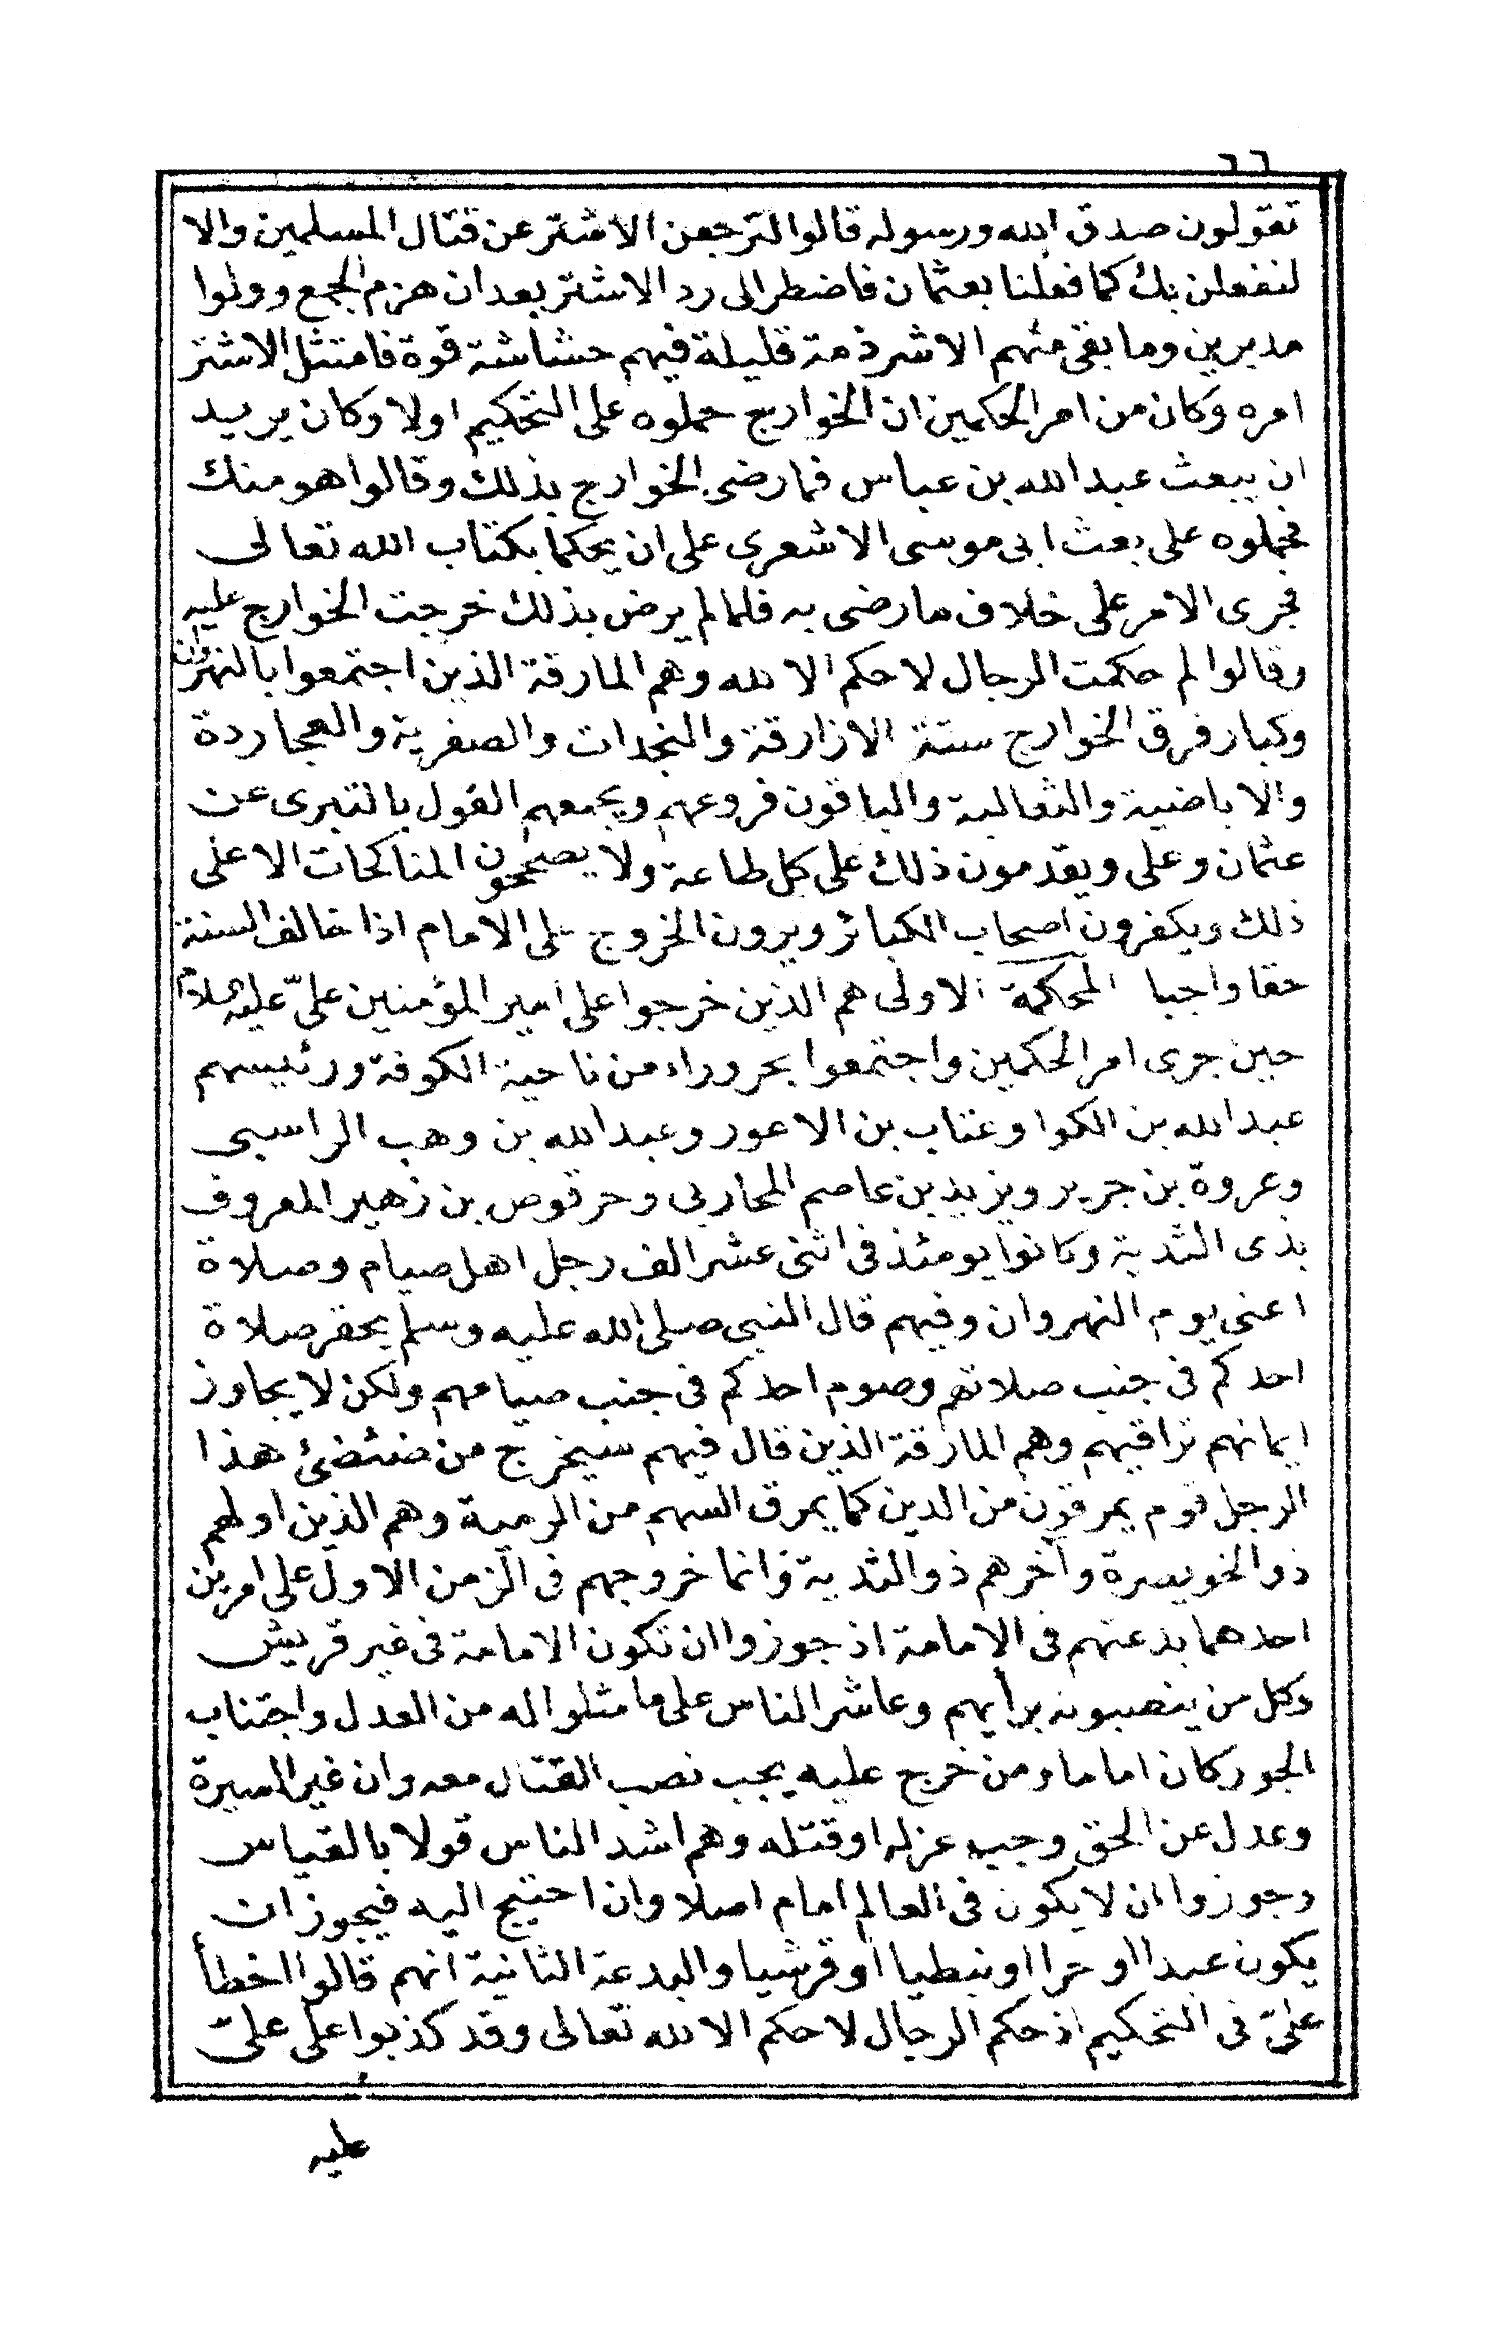 ٦٦
تقولون صدق الله ورسوله قالوا لترجعن الاشتر عن قتال المسلمين والا
لنفعلن بك كما فعلنا بعثمان فاضطر الى رد الاشتر بعد ان هزم الجمع وولوا
مدبرين وما بقى منهم الا شرذمة قليلة فيهم حشاشة قوة فامتثل الاشتر
امره وكان من امر الحكمين ان الخوارج حملوه على التحكيم اولا وكان يريد
ان يبعث عبد الله بن عباس فما رضى الخوارج بذلك وقالوا هو منك
فحملوه على بعث ابى موسى الاشعرى على ان يحكما بكتاب الله تعالى
فجرى الامر على خلاف ما رضى به فلما لم يرض بذلك خرجت الخوارج عليه
وقالوا لم حكمت الرجال لا حكم الا لله وهم المارقة الذين اجتمعوا بالنهروان
وكبار فرق الخوارج ستة الازارقة والنجدات والصفرية والعجاردة
والاباضية والثعالبة والباقون فروعهم ويجمعهم القول بالتبرى عن
عثمان وعلى ويقدمون ذلك على كل طاعة ولا يصححون المناكحات الا على
ذلك ويكفرون اصحاب الكبائر ويرون الخروج على الامام اذا خالف السنة
حقا واجبا المحكمة الاولى هم الذين خرجوا على امير المؤمنين علىّ عليه السلام
حين جرى امر الحكمين واجتمعوا بحروراء من ناحية الكوفة ورئيسهم
عبد الله بن الكوا وعتاب بن الاعور وعبد الله بن وهب الراسبى
وعروة بن جرير ويزيد بن عاصم المحاربى وحرقوص بن زهير المعروف
بذى الثدية وكانوا يومئذ فى اثنى عشر الف رجل اهل صيام وصلاة
اعنى يوم النهروان وفيهم قال النبى صلى الله عليه وسلم يحقر صلاة
احدكم فى جنب صلاتهم وصوم احدكم فى جنب صيامهم ولكن لا يجاوز
ايمانهم تراقيهم وهم المارقة الذين قال فيهم سيخرج من ضئضئ هذا
الرجل قوم يمرقون من الدين كما يمرق السهم من الرمية وهم الذين اولهم
ذو الخويصرة وآخرهم ذو الثدية وانما خروجهم فى الزمن الاول على امرين
احدهما بدعتهم فى الامامة اذ جوزوا ان تكون الامامة فى غير قريش
وكل من ينصبونه برأيهم وعاشر الناس على ما مثلوا له من العدل واجتناب
الجور كان اماما ومن خرج عليه يجب نصب القتال معه وان غير السيرة
وعدل عن الحق وجب عزله او قتله وهم اشد الناس قولا بالقياس
وجوزوا ان لا يكون فى العالم امام اصلا وان احتيج اليه فيجوز ان
يكون عبدا او حرا او نبطيا او قرشيا والبدعة الثانية انهم قالوا اخطأ
علىّ فى التحكيم اذ حكم الرجال لا حكم الا لله تعالى وقد كذبوا على علىّ
عليه